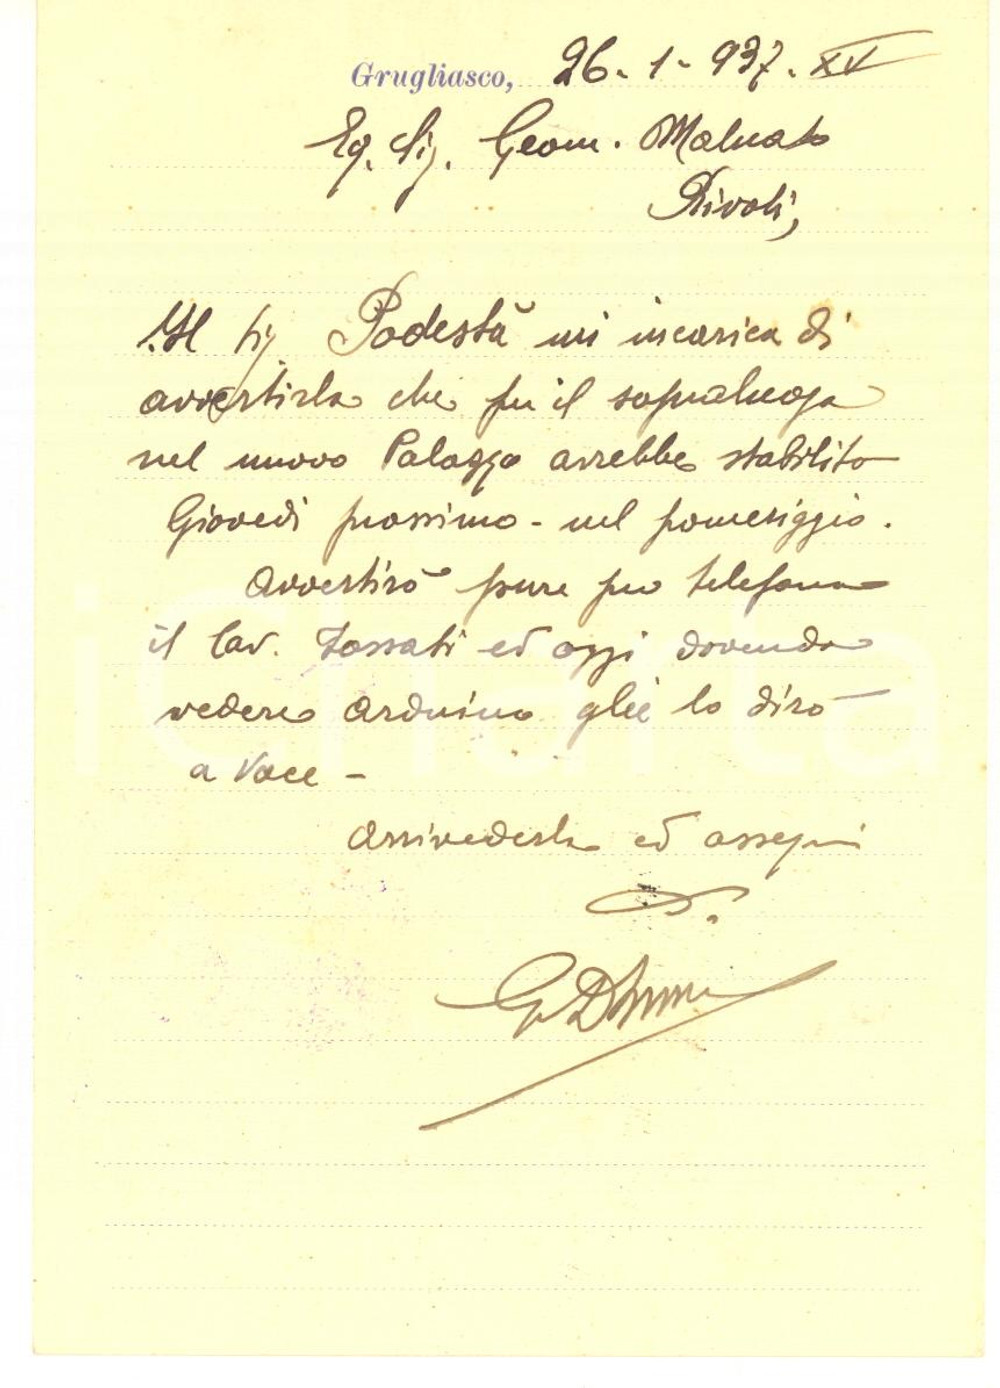 Grugliasco, 26-1-937. XV
Eg. Sig. Geom. Malvato
Rivoli,
Il Sig. Podestà mi incarica di
avvertirla che per il sopraluogo
nel nuovo Palazzo avrebbe stabilito
Giovedì prossimo - nel pomeriggio.
Avvertirò pure per telefono
il Cav. Fossati ed oggi dovendo
vedere Arduino gliè lo dirò
a voce -
Arrivederla ed ossequi